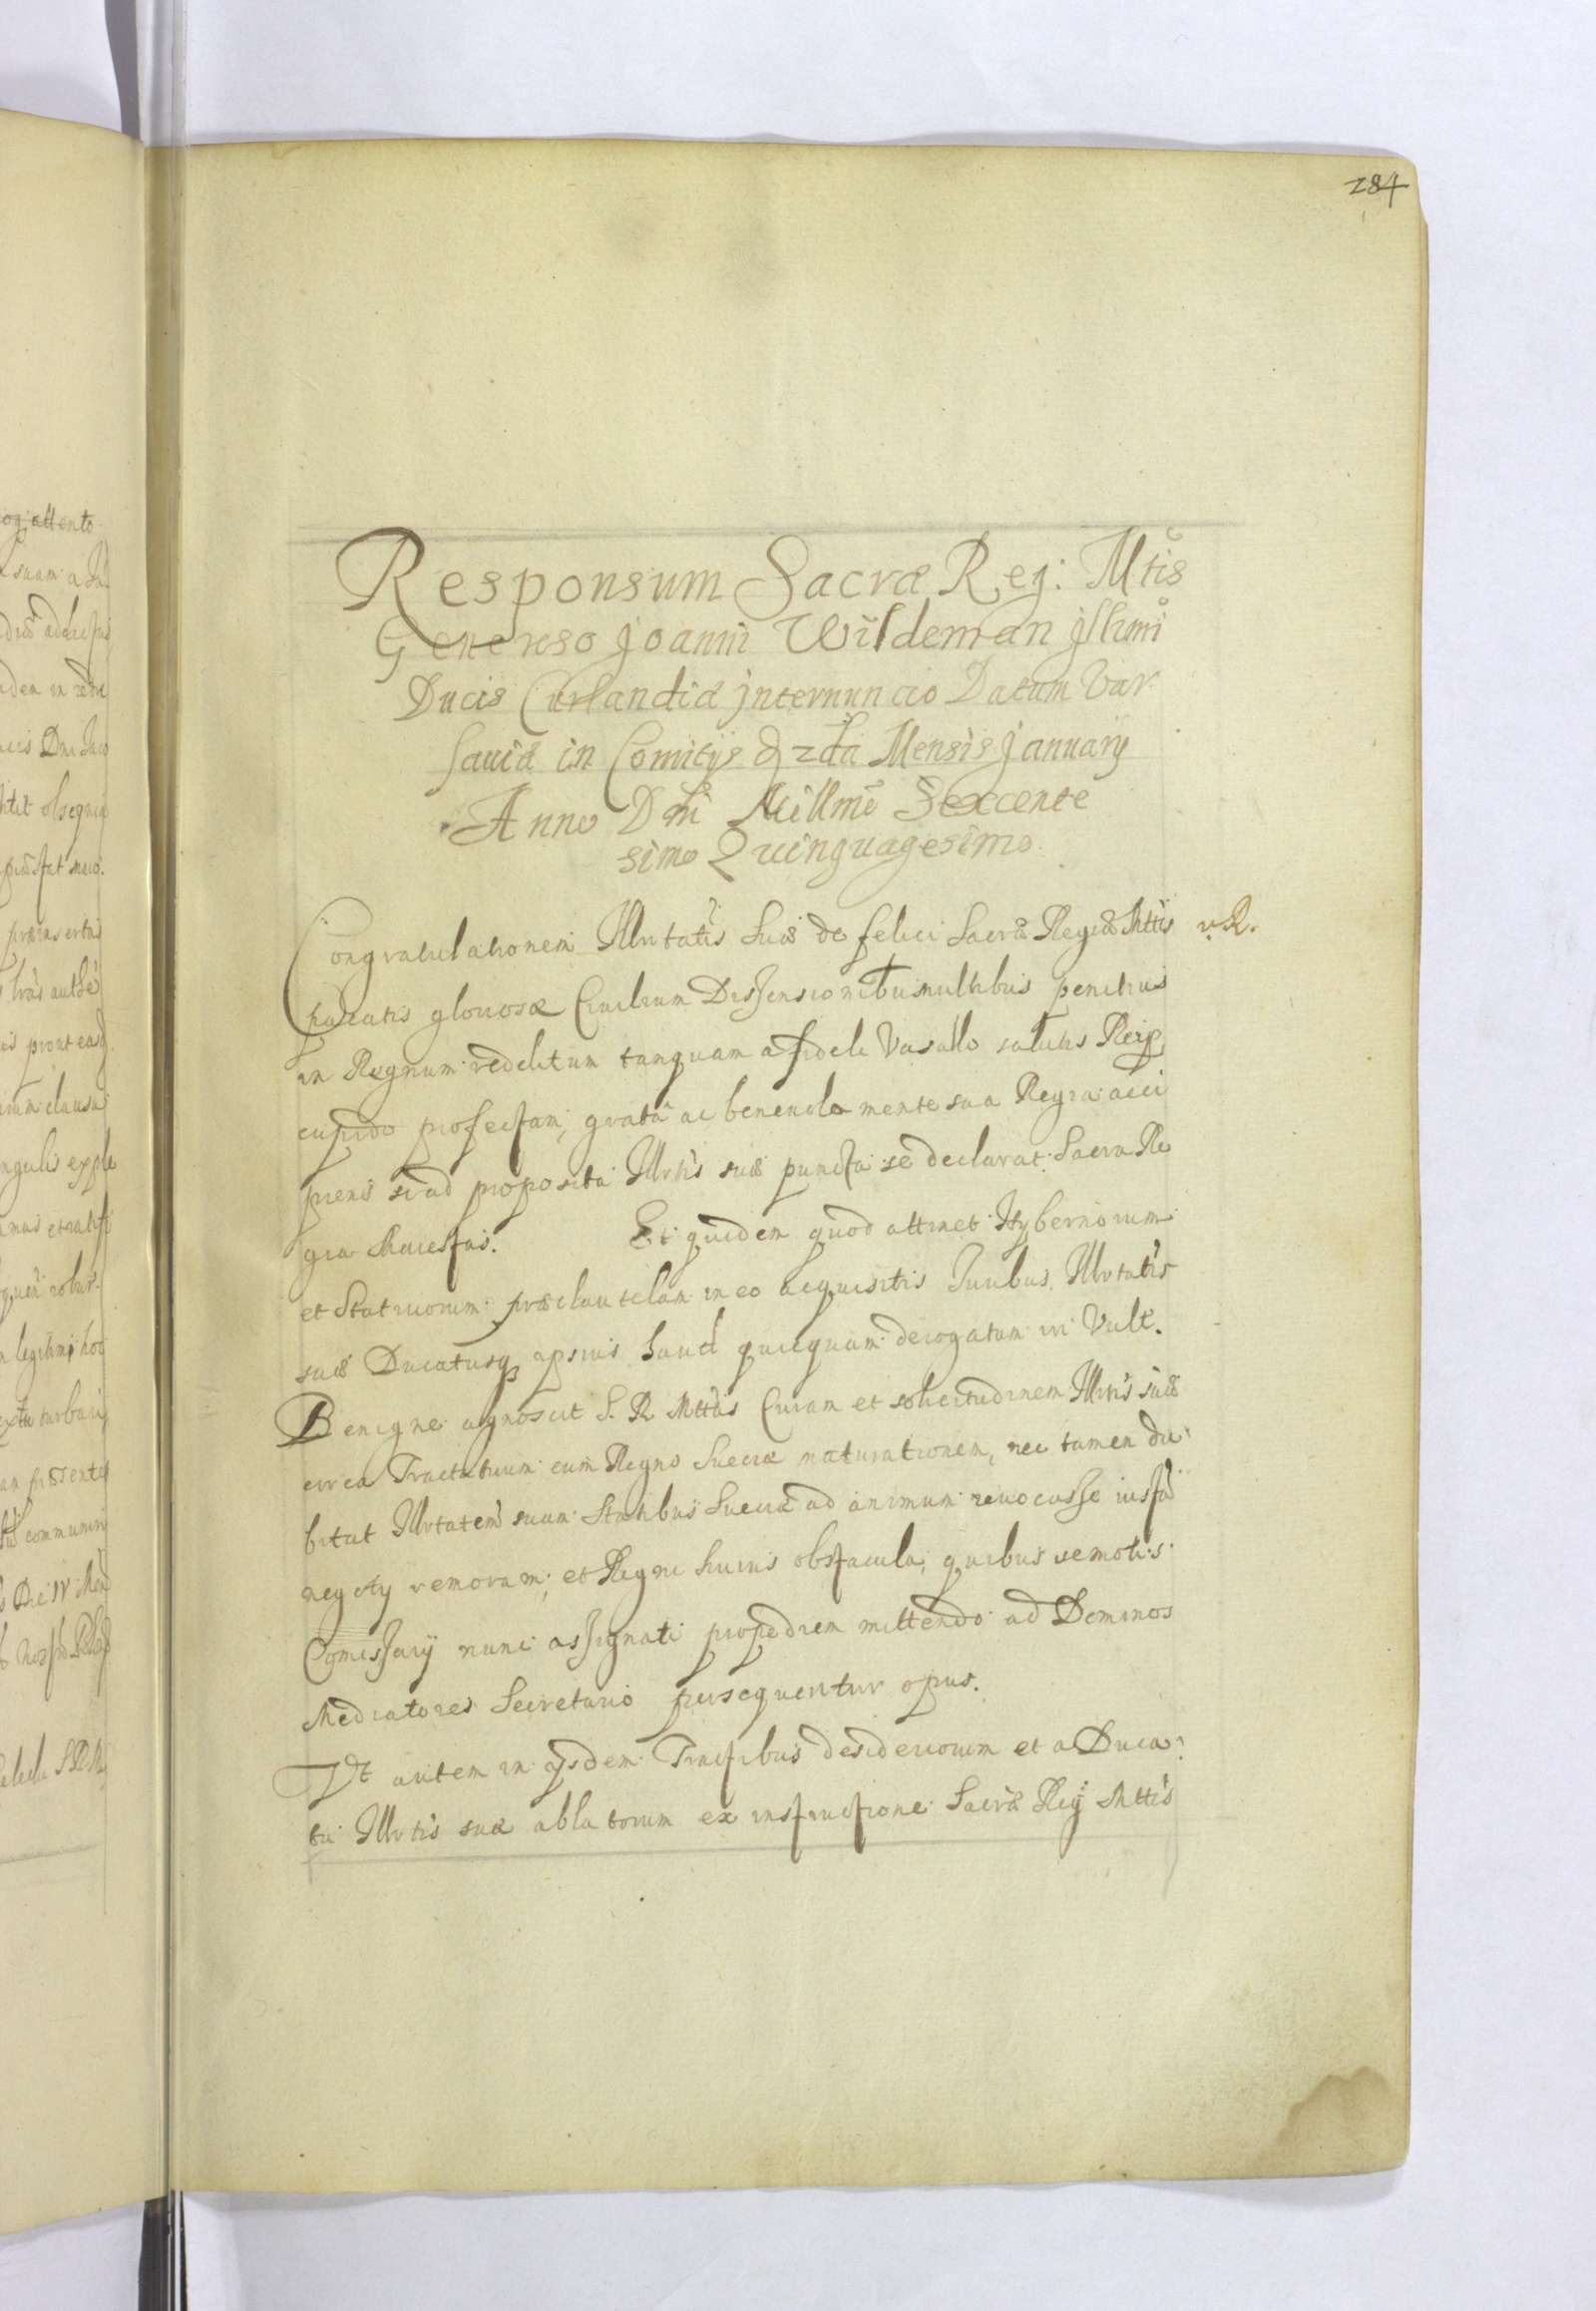 284
Responsum Sacræ Reg: Mtis
Generoso Joanni Wildeman Jllmi
Ducis Curlandiæ Jnternuncio Datum Var
saviæ in Comitijs 22da Mensis Januarij
Anno Dni Millmo Sexcente
simo Quinquagesimo.
Congratulationem Illrtatis Suæ de felici Sacræ Regiæ Mttis v. R.
pacatis gloriosæ Civilium Dissensionum tumultibus penitus
in Regnum redditum tanquam a fideli Vasallo salutis Reip
cupido profectam, grata ac benevola mente sua Regia acci
piens sic ad proposita Illrtis suæ puncta se declarat Sacra Re
gia Maiestas. Et quidem quod attinet Hybernorum
et Stativorum præclautelam in eo acquisitis Iuribus Illrtatis
suæ Ducatusq ipsius haud quicquam derogatum iri Vult.
Benigne agnoscit S. R. Mttas Curam et solicitudinem Illrtis suæ
circa Tractatuum cum Regno Sueciæ maturationem, nec tamen du
bitat Illrtatem suam Statibus Sueciæ ad animum revocasse iusta
negotij remoram, et Regni huius obstacula, quibus semotis
Comissarij nunc assignati propediem mittendo ad Dominos
Mediatores Secretario persequentur opus.
Vt autem in ijsdem Tractibus desideriorum et a Duca
tu Illrtis suæ ablatorum ex instructione Sacræ Reg Mttis